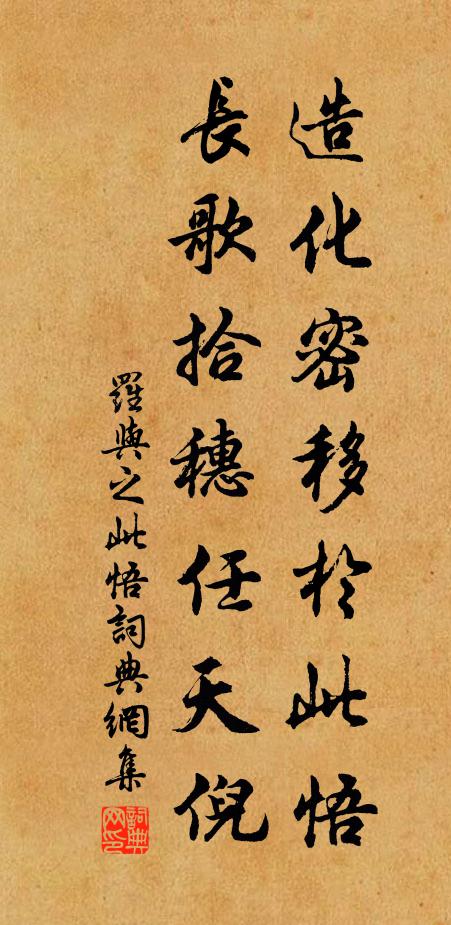 造化密移於此悟
長歌拾穗任天倪
羅與之此悟詞典網集
詞典網印